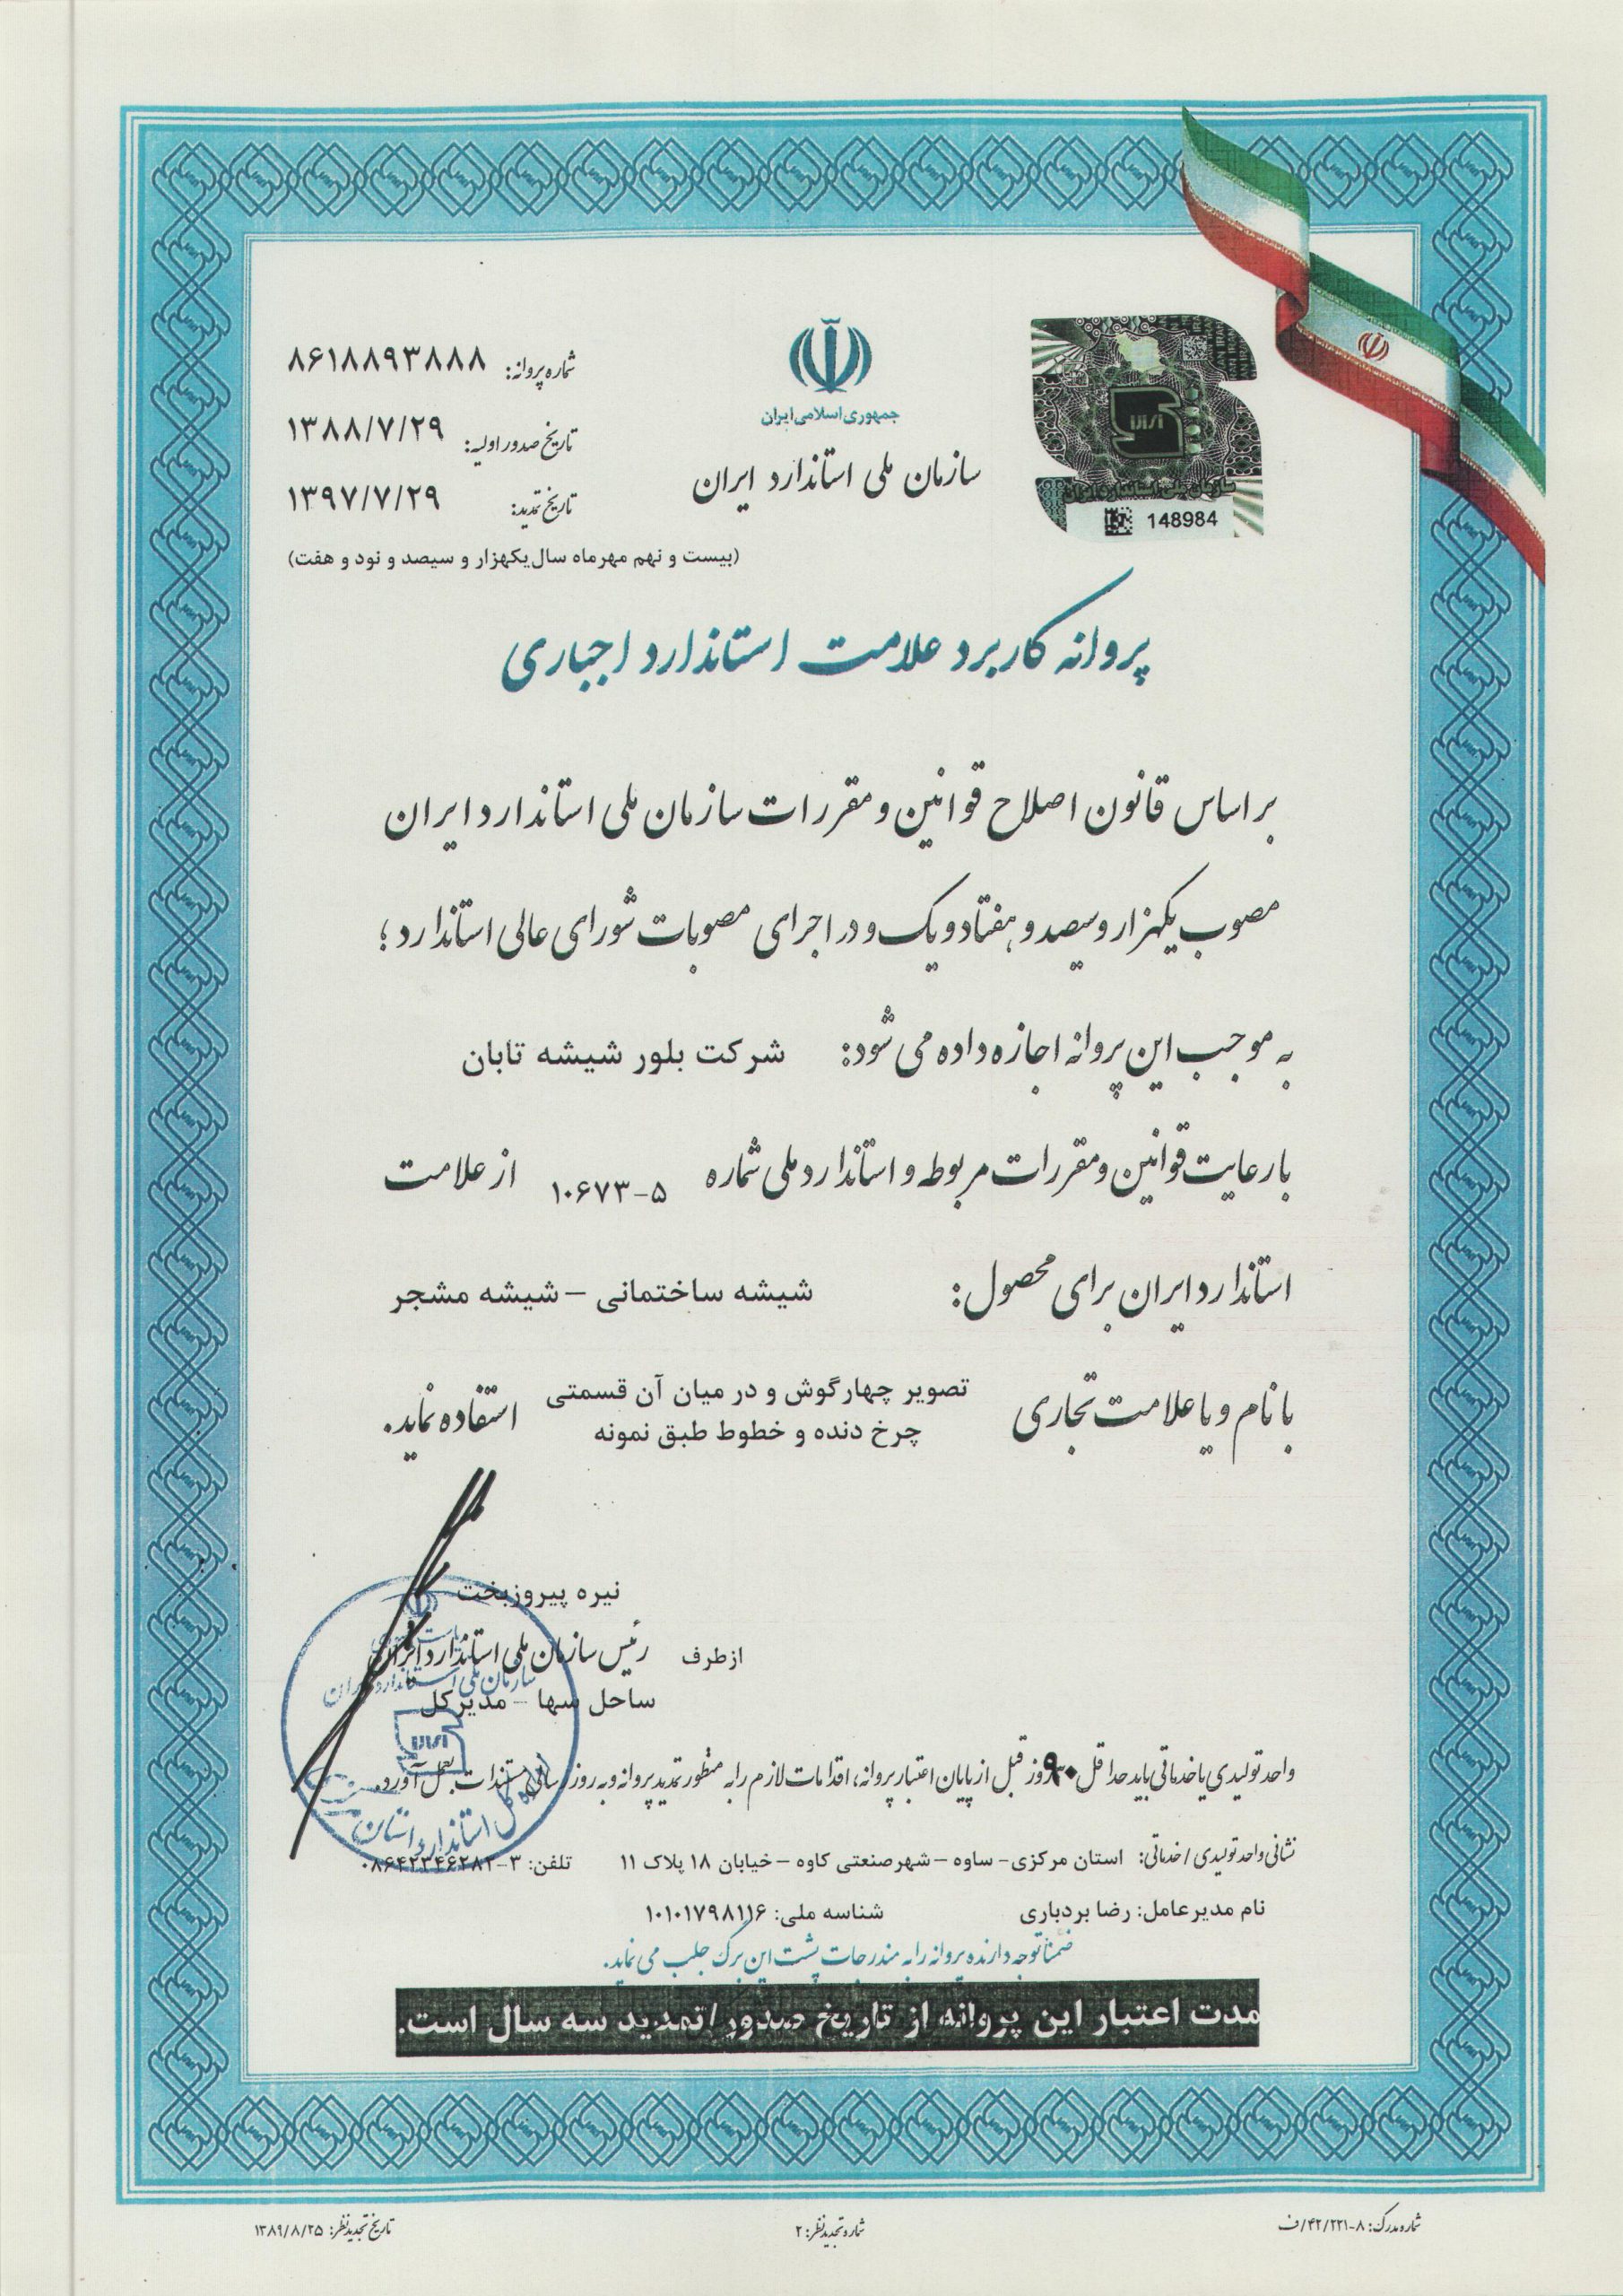 جمهوری اسلامی ایران
سازمان ملی استاندارد ایران
148984
شماره پروانه: ۸۶۱۸۸۹۳۸۸۸
تاریخ صدور اولیه: ۱۳۸۸/۷/۲۹
تاریخ تمدید: ۱۳۹۷/۷/۲۹
(بیست و نهم مهرماه سال یکهزار و سیصد و نود و هفت)
پروانه کاربرد علامت استاندارد اجباری
بر اساس قانون اصلاح قوانین و مقررات سازمان ملی استاندارد ایران
مصوب یکهزار و سیصد و هفتاد و یک و در اجرای مصوبات شورای عالی استاندارد ؛
به موجب این پروانه اجازه داده می شود: شرکت بلور شیشه تابان
با رعایت قوانین و مقررات مربوطه و استاندارد ملی شماره ۱۰۶۷۳-۵ از علامت
استاندارد ایران برای محصول: شیشه ساختمانی – شیشه مشجر
با نام و یا علامت تجاری تصویر چهارگوش و در میان آن قسمتی
چرخ دنده و خطوط طبق نمونه استفاده نماید.
نیره پیروزبخت
از طرف رئیس سازمان ملی استاندارد ایران
ساحل سها – مدیرکل
سازمان ملی استاندارد ایران
اداره کل استاندارد استان
واحد تولیدی یا خدماتی باید حداقل ۹۰ روز قبل از پایان اعتبار پروانه، اقدامات لازم را به منظور تمدید پروانه و به روز رسانی مستندات بعمل آورد.
نشانی واحد تولیدی / خدماتی: استان مرکزی- ساوه – شهر صنعتی کاوه – خیابان ۱۸ پلاک ۱۱ تلفن: ۳-۰۸۶۴۲۳۴۶۲۸۲
نام مدیرعامل: رضا بردباری شناسه ملی: ۱۰۱۰۱۷۹۸۱۱۶
ضمناً توجه دارنده پروانه را به مندرجات پشت این برگ جلب می نماید.
مدت اعتبار این پروانه از تاریخ صدور/تمدید سه سال است.
شماره مدرک: ف/۴۲/۲۲۱-۸
شماره تجدید نظر: ۲
تاریخ تجدید نظر: ۱۳۸۹/۸/۲۵